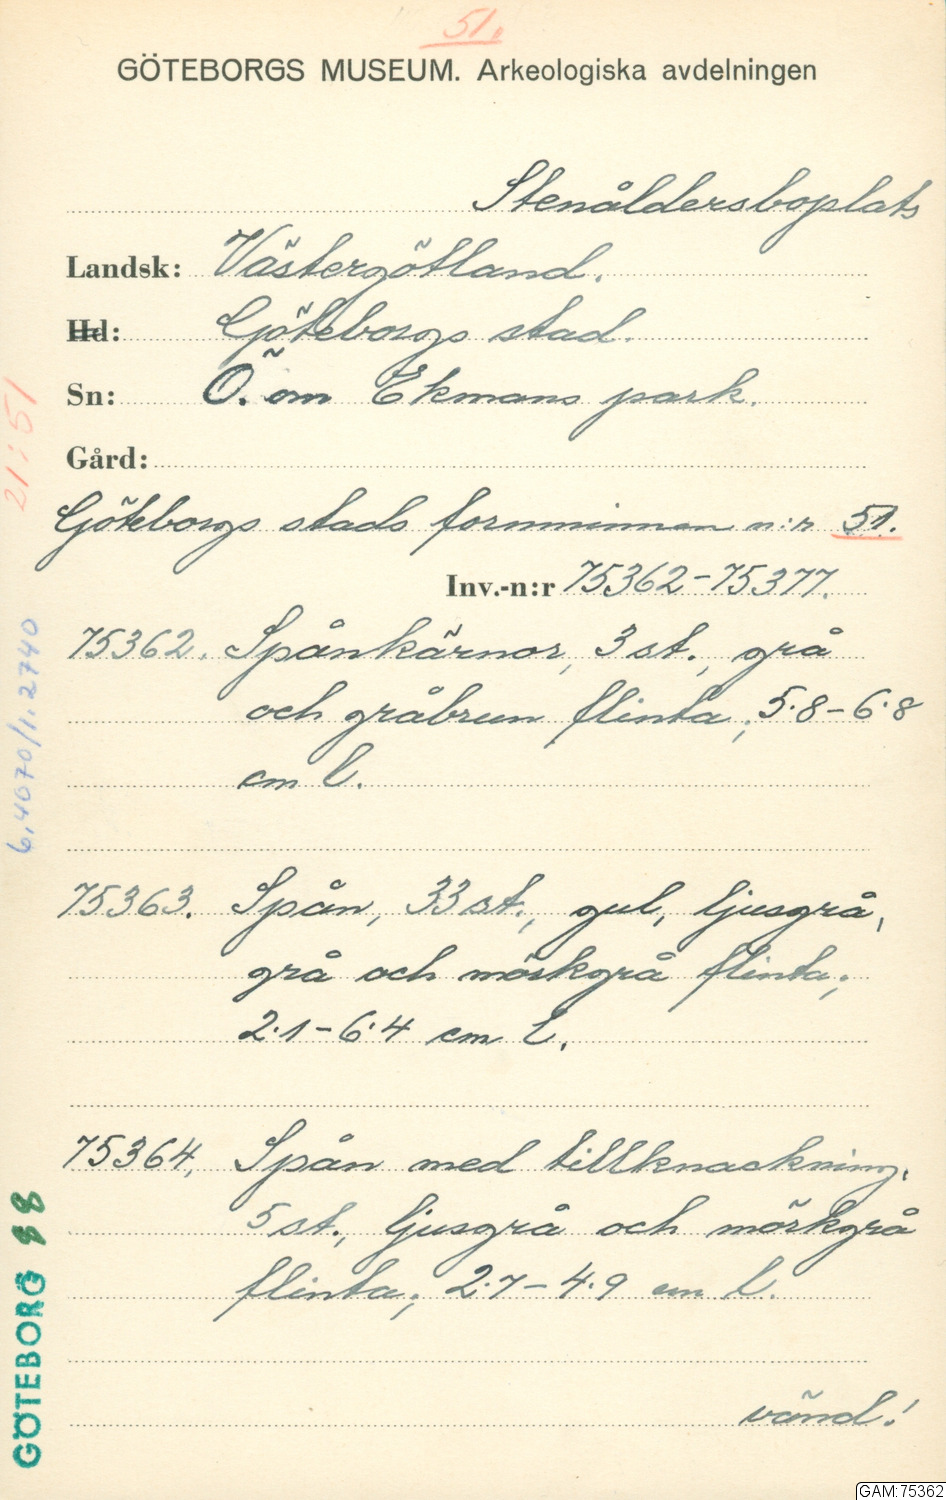 51.
GÖTEBORGS MUSEUM. Arkeologiska avdelningen
Stenåldersboplats
Landsk: Västergötland.
Hd: Göteborgs stad.
Sn: Ö. om Ekmans park.
Gård:
Göteborgs stads fornminnen n:r 51.
Inv.-n:r 75362-75377.
75362. Spånkärnor, 3 st., grå
och gråbrun flinta; 5·8-6·8
cm l.
75363. Spån, 33 st., gul, ljusgrå,
grå och mörkgrå flinta;
2·1-6·4 cm l.
75364. Spån med tillknackning,
5 st., ljusgrå och mörkgrå
flinta; 2·7-4·9 cm l.
vänd!
21:51
6.4070/1.2740
GÖTEBORG 88
GAM:75362